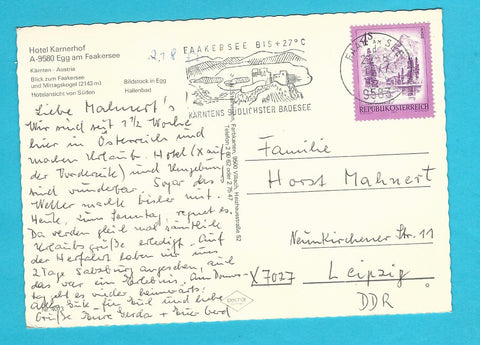 Hotel Karnerhof
A-9580 Egg am Faakersee
Kärnten - Austria
Blick zum Faakersee
und Mittagskogel (2143 m)
Hotelansicht von Süden
Bildstock in Egg
Hallenbad
FAAKERSEE BIS +27°C
KÄRNTENS SÜDLICHSTER BADESEE
9583
REPUBLIK ÖSTERREICH
Liebe Mahnert's!
Wir sind seit 1 1/2 Woche
hier in Österreich und
machen Urlaub. Hotel (X auf
der Vorderseite) und Umgebung
sind wunderbar. Sogar das
Wetter machte bisher mit.
Heute, zum Sonntag, regnet es.
Da werden gleich mal sämtliche
Urlaubsgrüße erledigt. Auf
der Herfahrt haben wir uns
2 Tage Salzburg angesehen, auch
das war ein Erlebnis. Am Donners-
tag geht es wieder heimwärts.
Alles Gute für Euch und liebe
Grüße Eure Gerda + Euer Gerd
Familie
Horst Mahnert
Neunkirchener Str. 11
X 7027 Leipzig
DDR